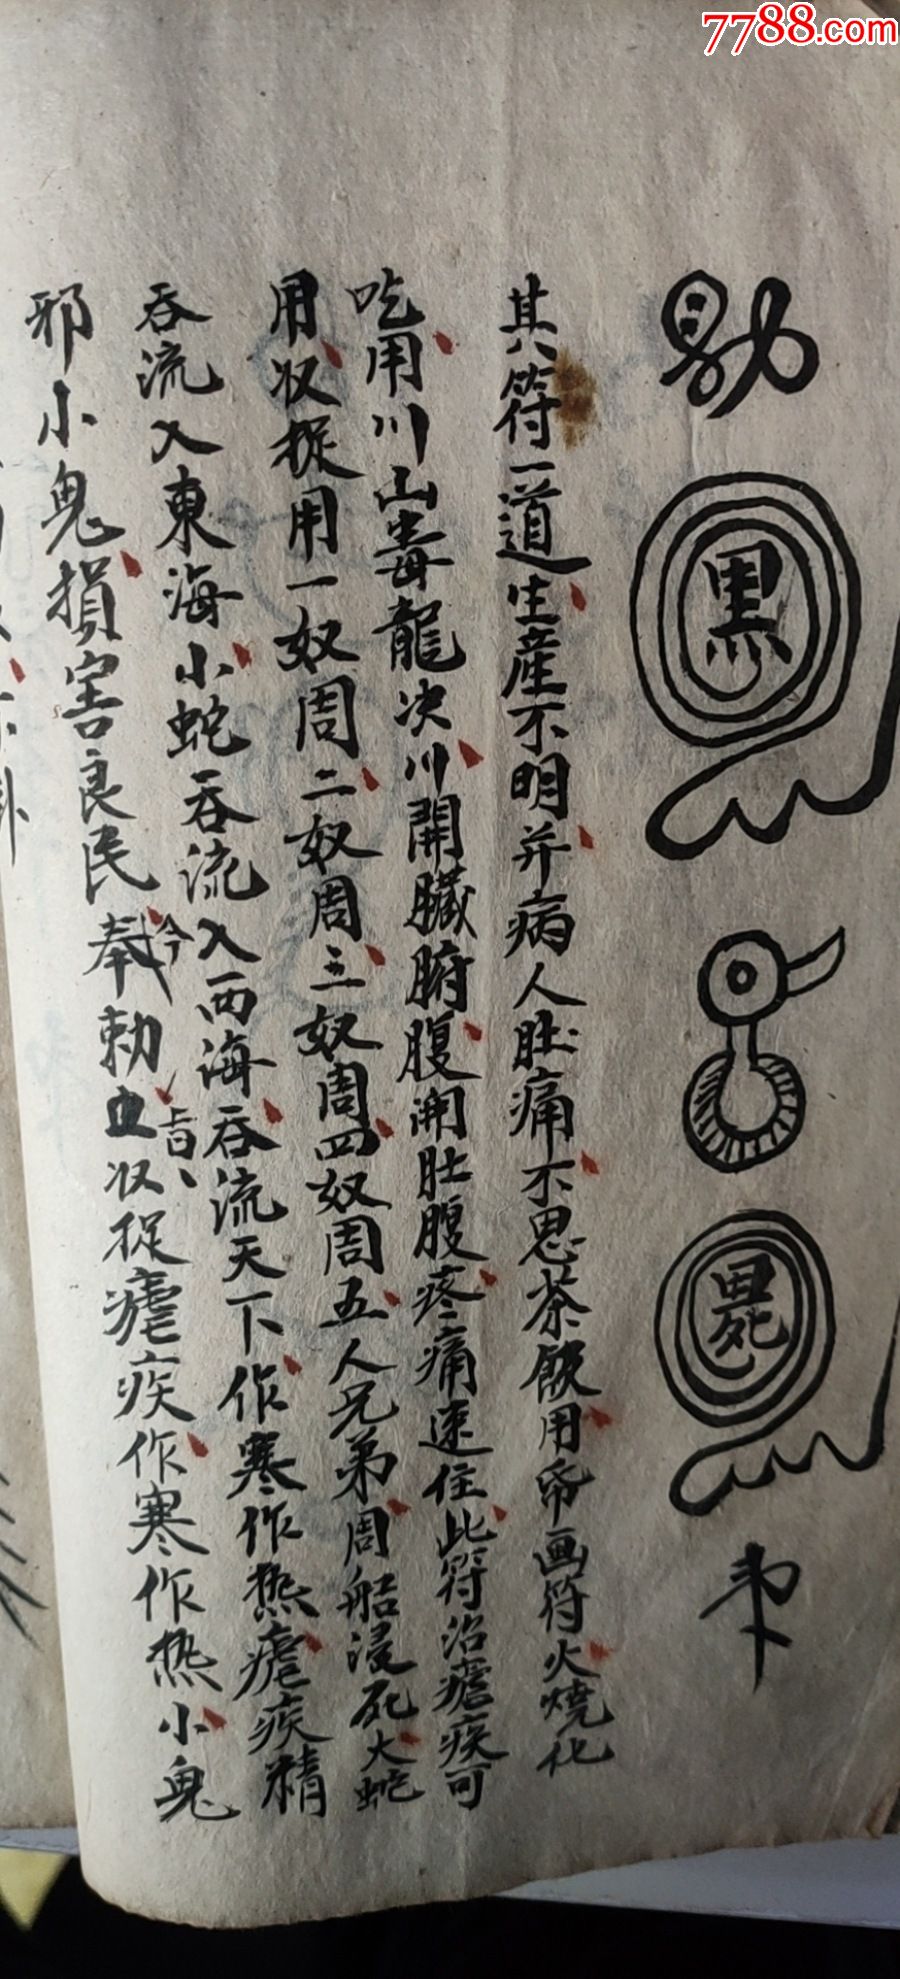 7788.com
勅
黑
其符一道生産不明并病人肚痛不思茶飯用帋画符火燒化
吃用川山毒龍决川開臟腑腹開肚腹疼痛速住此符治瘧疾可
用収捉用一奴周二奴周三奴周四奴周五人兄弟周船浸死大蛇
吞流入東海小蛇吞流入西海吞流天下作寒作热瘧疾精
邪小鬼損害良民奉今勅上旨収捉瘧疾作寒作热小鬼